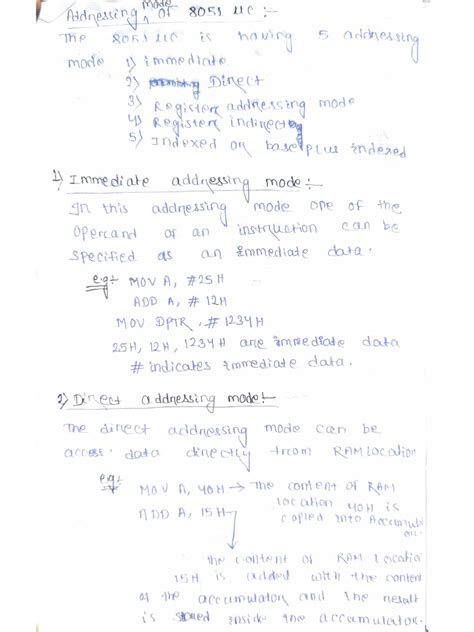 Addressing mode of 8051 uc :-
The 8051 uc is having 5 addressing
mode 1) immediate
2) Direct
3) Register addressing mode
4) Register indirect
5) Indexed or base plus indexed
1) Immediate addressing mode :-
In this addressing mode one of the
opercand of an instruction can be
specified as an immediate data.
e.g:- MOV A, #25H
ADD A, # 12H
MOV DPTR, # 1234H
25H, 12H, 1234H are immediate data
# indicates immediate data.
2) Direct addressing mode:-
The direct addressing mode can be
access data directly from RAM location
e.g:- MOV A, 40H → The content of RAM
location 40H is
copied into Accumulat
or.
ADD A, 15H
The content of RAM locatio
15H is added with the content
of the accumulator and the result
is stored inside the accumulator.